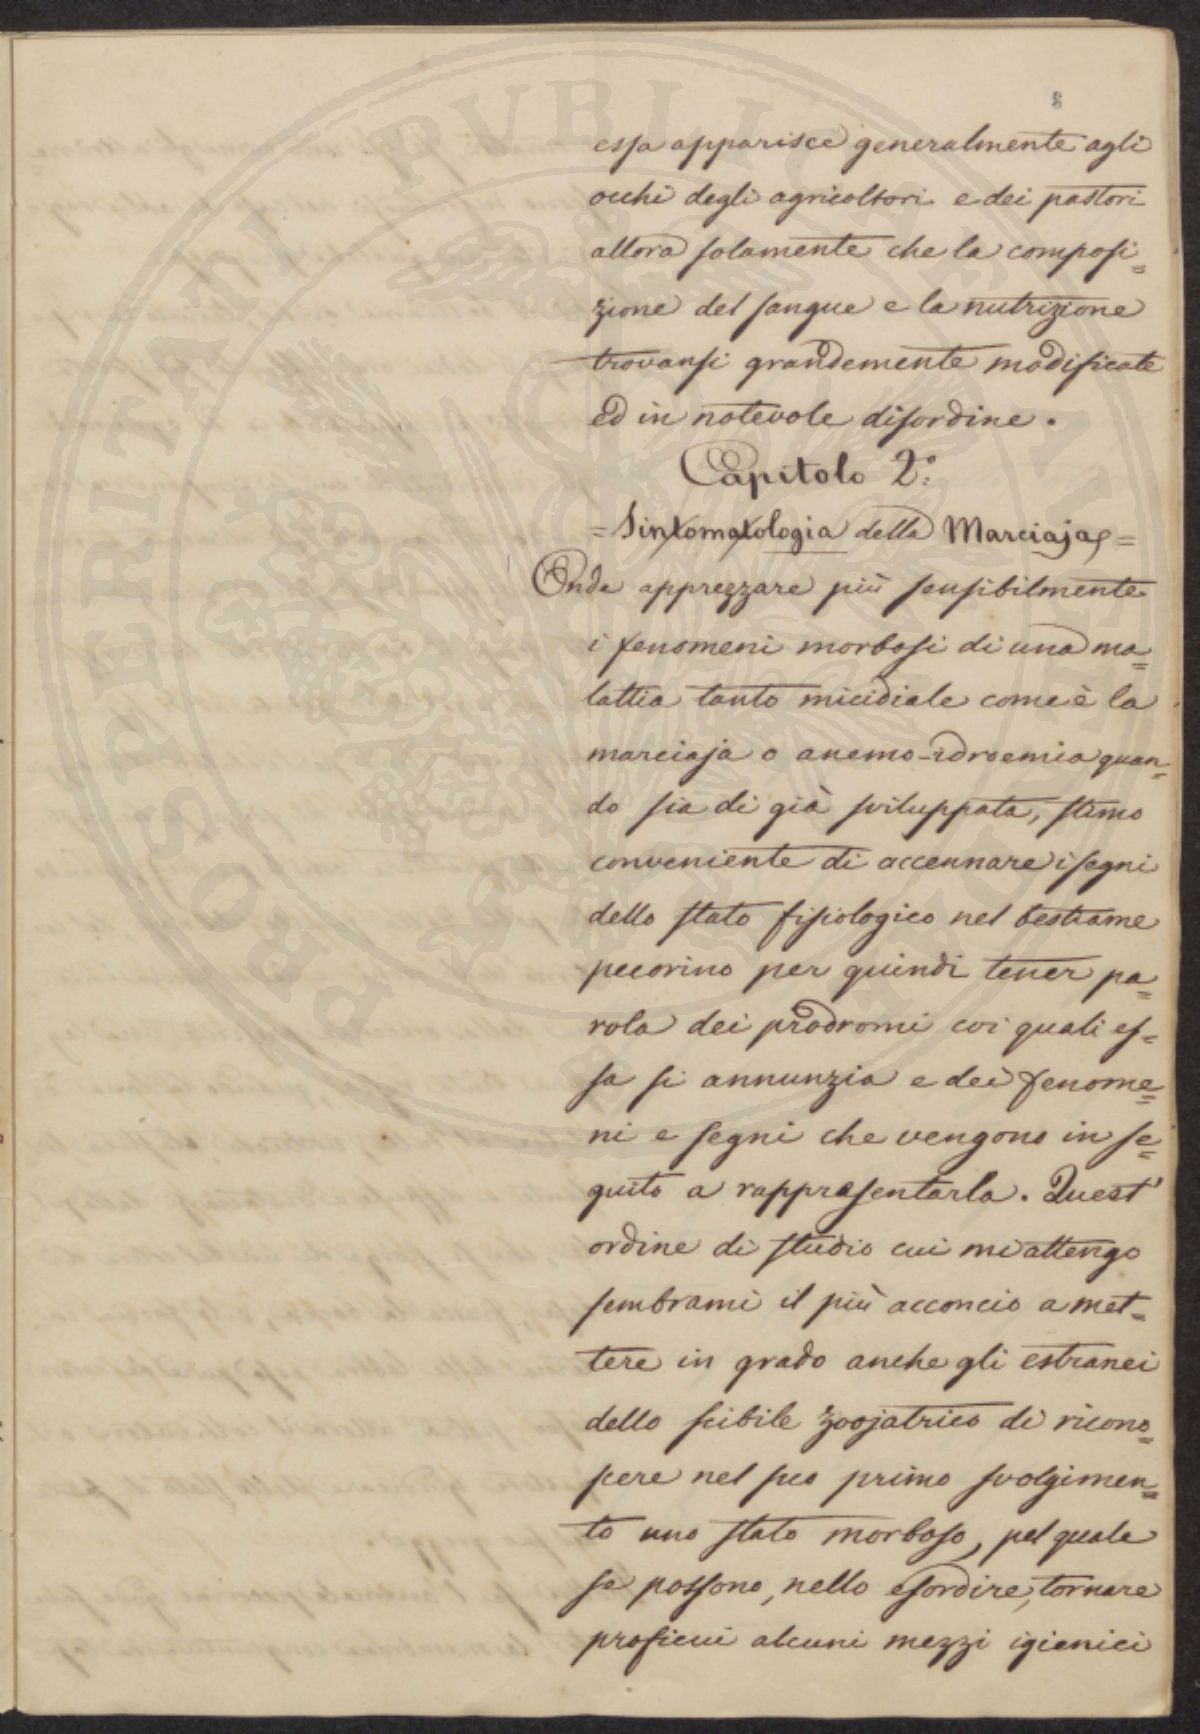 8
essa apparisce generalmente agli
occhi degli agricoltori e dei pastori
allora solamente che la composi=
zione del sangue e la nutrizione
trovansi grandemente modificate
ed in notevole disordine.
Capitolo 2°:
= Sintomatologia della Marciaja =
Onde apprezzare più sensibilmente
i fenomeni morbosi di una ma=
lattia tanto micidiale come è la
marciaja o anemo-idroemia quan=
do sia di già sviluppata, stimo
conveniente di accennare i segni
dello stato fisiologico nel bestiame
pecorino per quindi tener pa=
rola dei prodromi coi quali es=
sa si annunzia e dei fenome=
ni e segni che vengono in se=
guito a rappresentarla. Quest'
ordine di studio cui mi attengo
sembrami il più acconcio a met=
tere in grado anche gli estranei
dello scibile zoojatrico di ricono=
scere nel suo primo svolgimen=
to uno stato morboso, pel quale
se possono, nello esordire, tornare
proficui alcuni mezzi igienici
PROSPERITATI PVBLICAE AVGENDAE